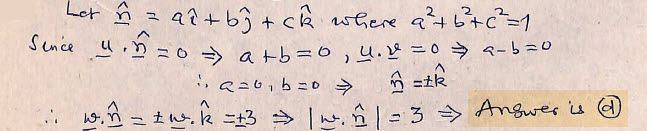 Let n̂ = aî + bĵ + ck̂ where a²+b²+c²=1
Since u.n̂ = 0 ⇒ a+b=0 , u.v = 0 ⇒ a-b=0
∴ a=0, b=0 ⇒ n̂ = ±k̂
∴ w.n̂ = ± w.k̂ = ±3 ⇒ |w.n̂| = 3 ⇒ Answer is ⓓ